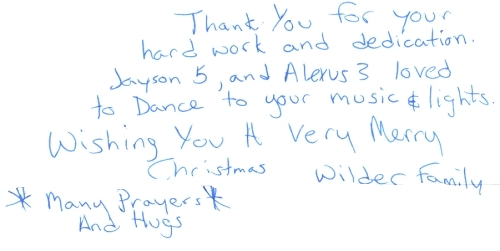 Thank You for your
hard work and dedication.
Jayson 5, and Alexus 3 loved
to Dance to your music & lights.
Wishing You A Very Merry
Christmas Wilder Family
* Many Prayers *
And Hugs